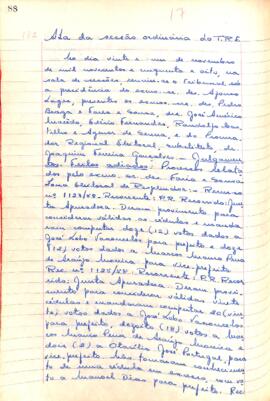 88
17
Ata da sessão ordinária do T.R.E.
No dia vinte e um de novembro
de mil novecentos e cinquenta e oito, na
sala de sessões, reuniu-se o Tribunal sob
a presidência do exmo. sr. des. Afonso
Lages, presentes os exmos. srs. des. Pedro
Braga e Faria e Sousa, drs. José Américo
Macedo, Edésio Fernandes,
Filho e de Senna, e do Procura-
dor Regional Eleitoral, substituto, dr.
Joaquim Ferreira Gonçalves. Julgamen-
tos. Feitos adiados: Processos relata-
dos pelo exmo. sr. des. Faria e Sousa:
Zona Eleitoral de Resplendor: Recurso
nº 1124/58. Recorrente: P.R. Recorrido: Jun-
ta Apuradora. Deram provimento para
considerar válidas as cédulas e manda-
ram computar doze (12) votos dados a
José Lobo Vasconcelos para prefeito e doze
(12) votos dados a Marcos Mauro Pena
de Araújo Moreira para vice-prefeito.
Rec. nº 1125/58. Recorrente: P.R. Recor-
rido: Junta Apuradora. Deram provi-
mento para considerar válidas vinte
cédulas e mandaram computar 20 (vin-
te) votos dados a José Lobo Vasconcelos
para prefeito, dezoito (18) votos a Mar-
cos Mauro Pena de Araújo Moreira e
dois (2) a Otacílio José Portugal, para
vice-prefeito. Não tomaram conhecimen-
to de uma cédula em branco, com vo-
to a Manoel Dias para prefeito. Rec.